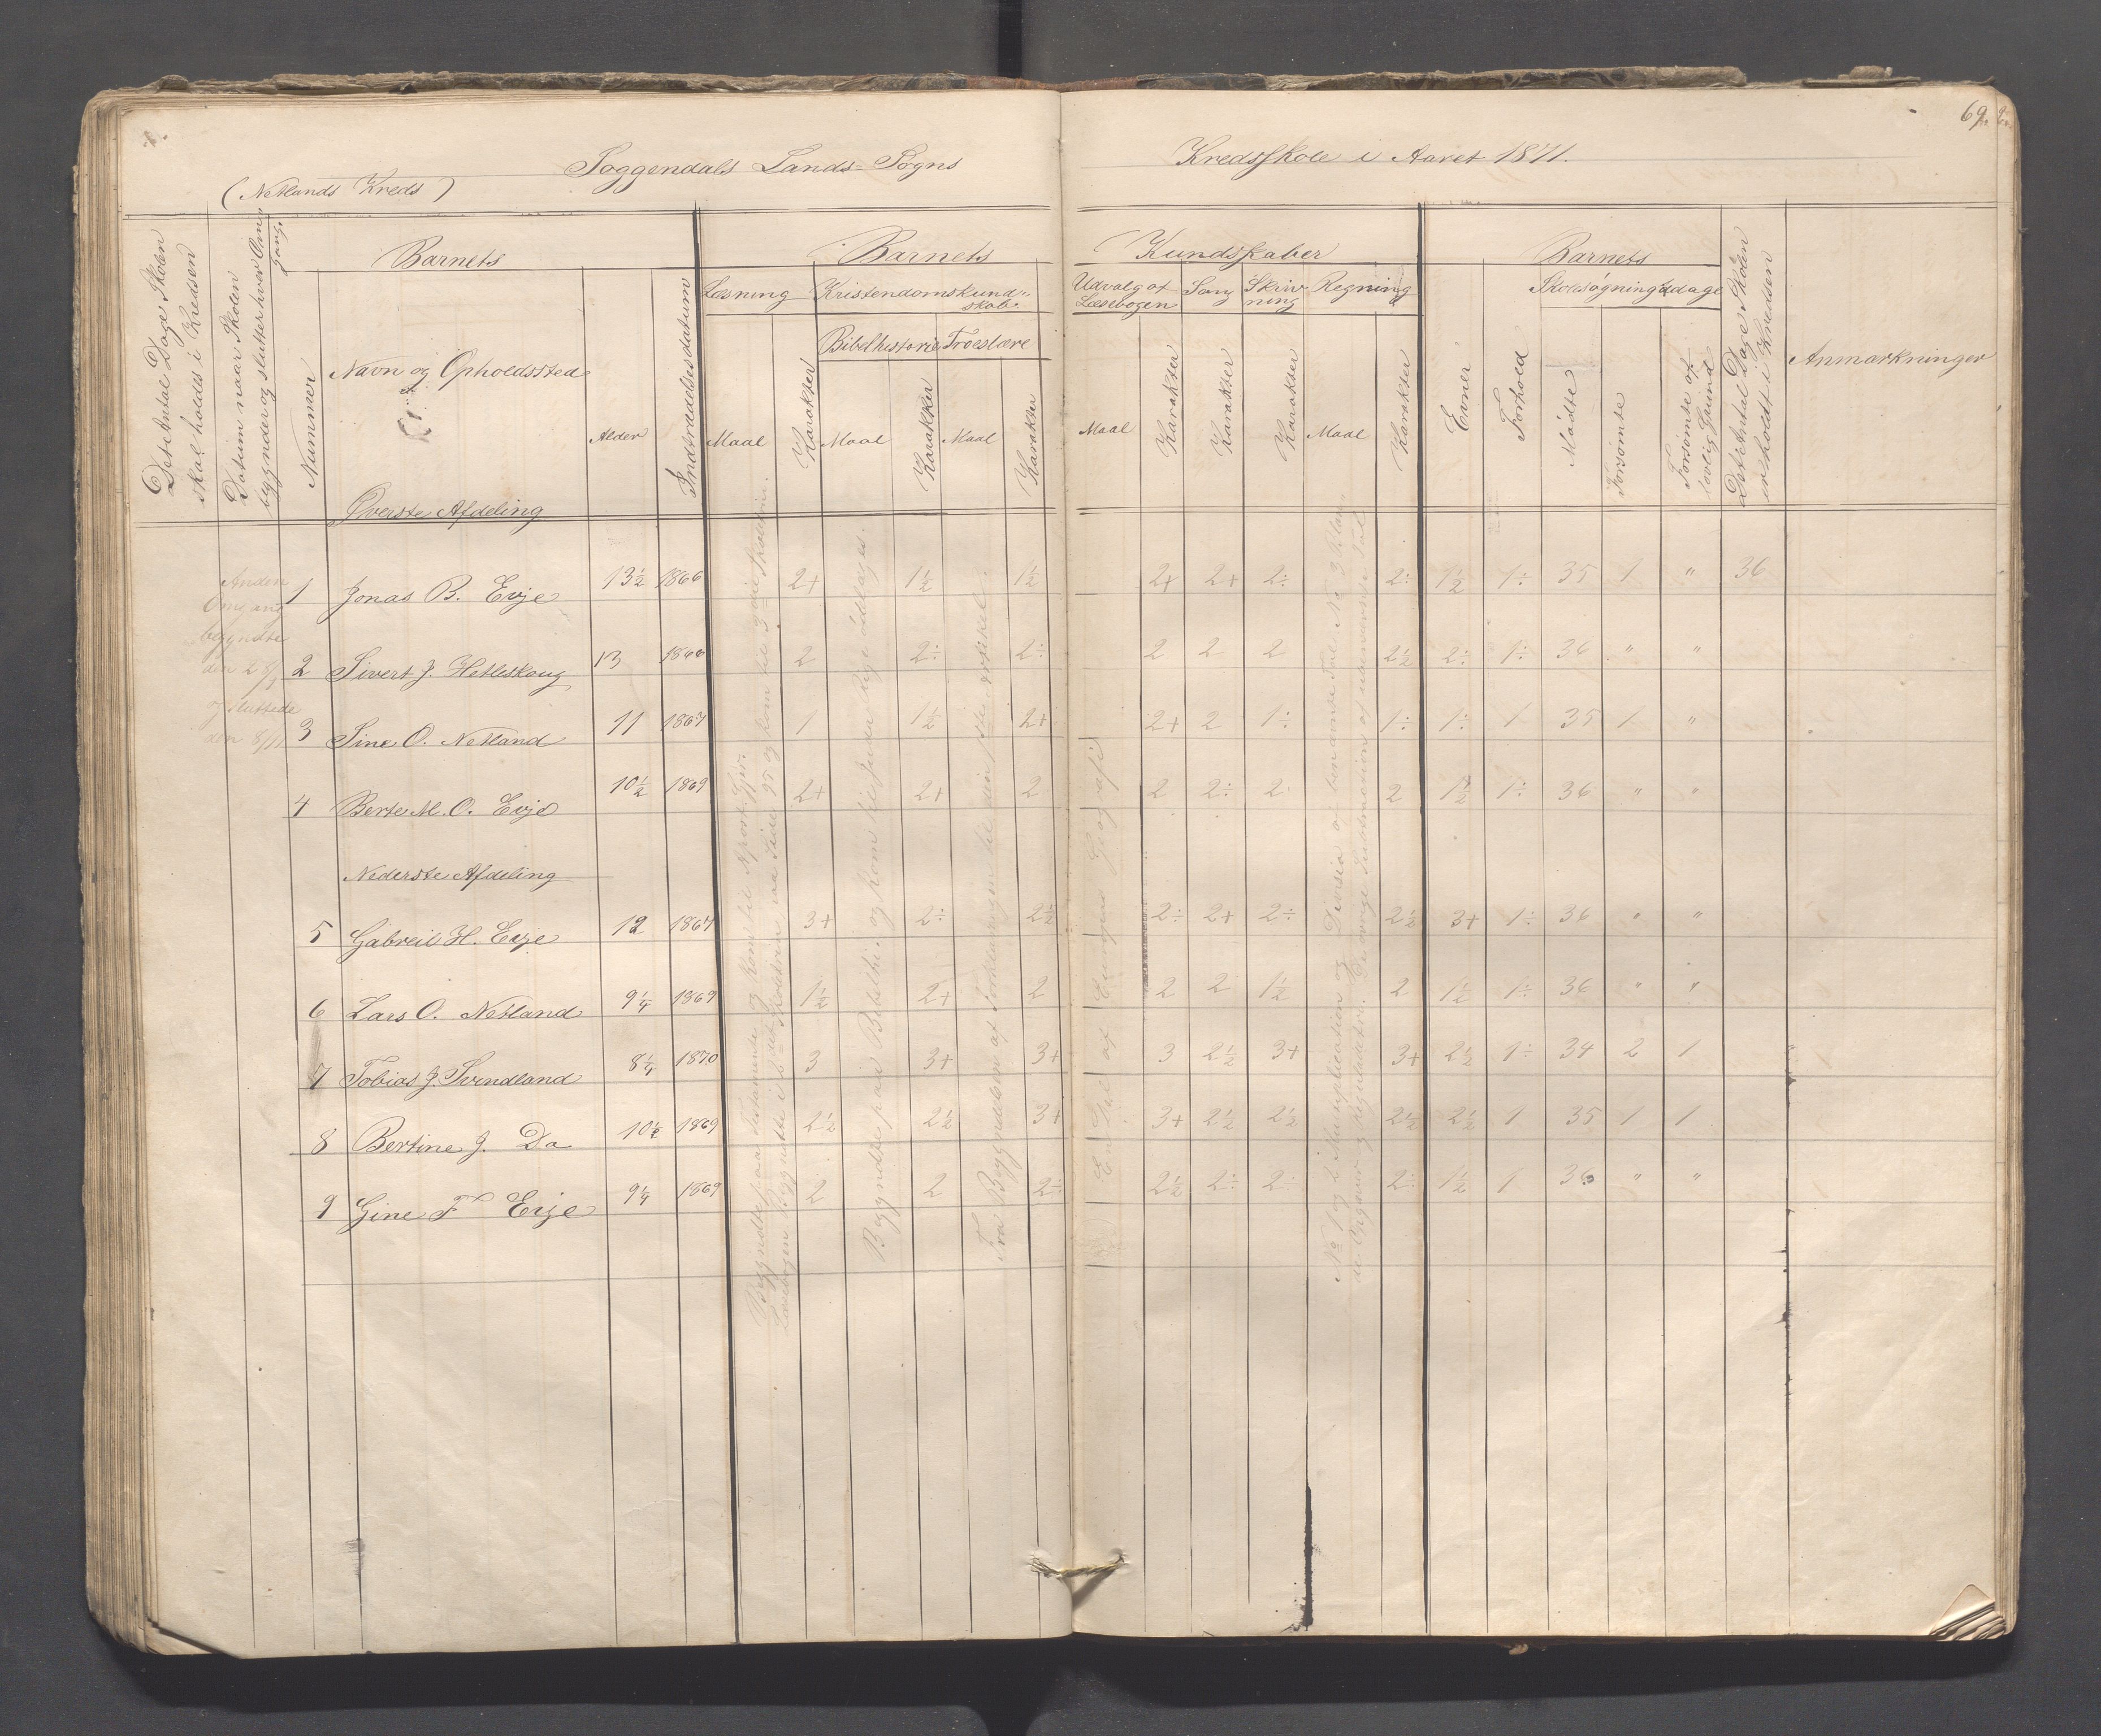 69.
Soggendals Lands-Sogns Kredsskole i Aaret 1871.
(Netlands Kreds)
Det Antal Dage Skolen skal holdes i Kredsen
Datum naar Skolen begynder og slutter hver Omgang
Barnets
Nummer
Navn og Opholdssted
Alder
Indtrædelsesdatum
Barnets Kundskaber
Læsning
Maal
Karakter
Kristendomskundskab.
Bibelhistorie
Maal
Karakter
Troeslære
Maal
Karakter
Udvalg af Læsebogen
Maal
Karakter
Sang
Karakter
Skrivning
Karakter
Regning
Maal
Karakter
Barnets
Evner
Forhold
Skolesøgningsdage
Mødte
Forsømte
Forsømte af lovlig Grund
Det Antal Dage Skolen er holdt i Kredsen
Anmærkninger
Øverste Afdeling
Anden
Omgang
begyndte
den 28/9
og sluttede
den 8/11
1 Jonas B. Evje 13½ 1866 2+ 1½ 1½ 2+ 2+ 2÷ 2÷ 1½ 1÷ 35 1 " 36
2 Sivert J. Hetleskoug 13 1866 2 2÷ 2÷ 2 2 2 2½ 2÷ 1÷ 36 " "
3 Sine O. Netland 11 1867 1 1½ 2+ 2+ 2 1÷ 1÷ 1÷ 1 35 1 "
4 Berte M. O. Evje 10½ 1869 2+ 2+ 2 2 2÷ 2 2 1½ 1÷ 36 " "
Nederste Afdeling
5 Gabreil H. Evje 12 1867 3+ 2÷ 2½ 2÷ 2+ 2÷ 2½ 3+ 1÷ 36 " "
6 Lars O. Netland 9¼ 1869 1½ 2+ 2 2 2 1½ 2 1½ 1÷ 36 " "
7 Tobias J. Svindland 8¼ 1870 3 3+ 3+ 3 2½ 3+ 3+ 2½ 1÷ 34 2 1 "
8 Bertine J. Do 10½ 1869 2½ 2½ 3+ 3+ 2½ 2½ 2½ 2½ 1 35 1 1
9 Gine F Evje 9¼ 1869 2 2 2÷ 2½ 2÷ 2÷ 2÷ 1½ 1 36 " "
Begyndte paa Testamente og kom til Apost. Gjer.
Læsebogen begyndte i det Historien Side 95 og kom til 3die Skoletrin.
Begyndte paa Bibelhi. og kom til Juda Rige ødelages.
Fra Begyndelsen af Forklaringen til den 1ste Artikel.
En Del af Geografi
No 1 og 2 Multiplication og Division